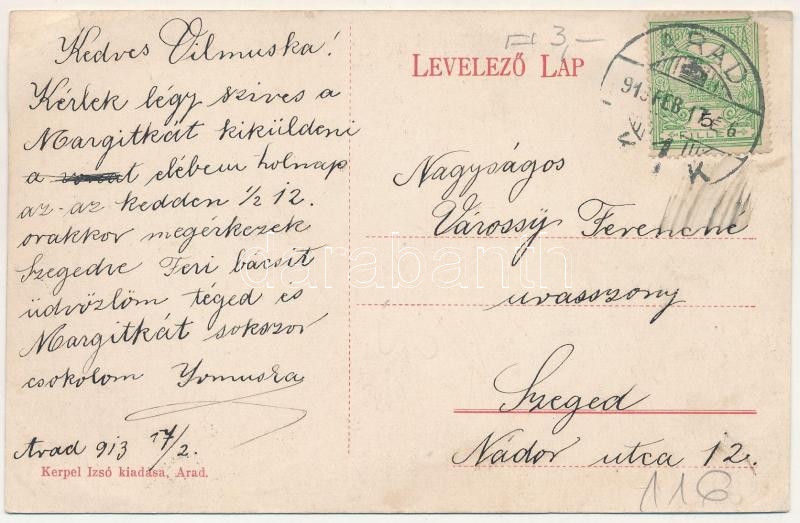 Kedves Vilmuska!
Kérlek légy szives a
Margitkát kiküldeni
a elébem holnap
az-az kedden 1/2 12.
orakkor megérkezek
Szegedre Feri bácsit
üdvözlöm téged és
Margitkát sokszor
csokolom
Arad 913 17/2.
Kerpel Izsó kiadása, Arad.
3,-
LEVELEZŐ LAP
ARAD
913 FEB. 17
5
FILLÉR
Nagyságos
Várossÿ Ferencné
urasszony
Szeged
Nádor utca 12.
116
darabanth